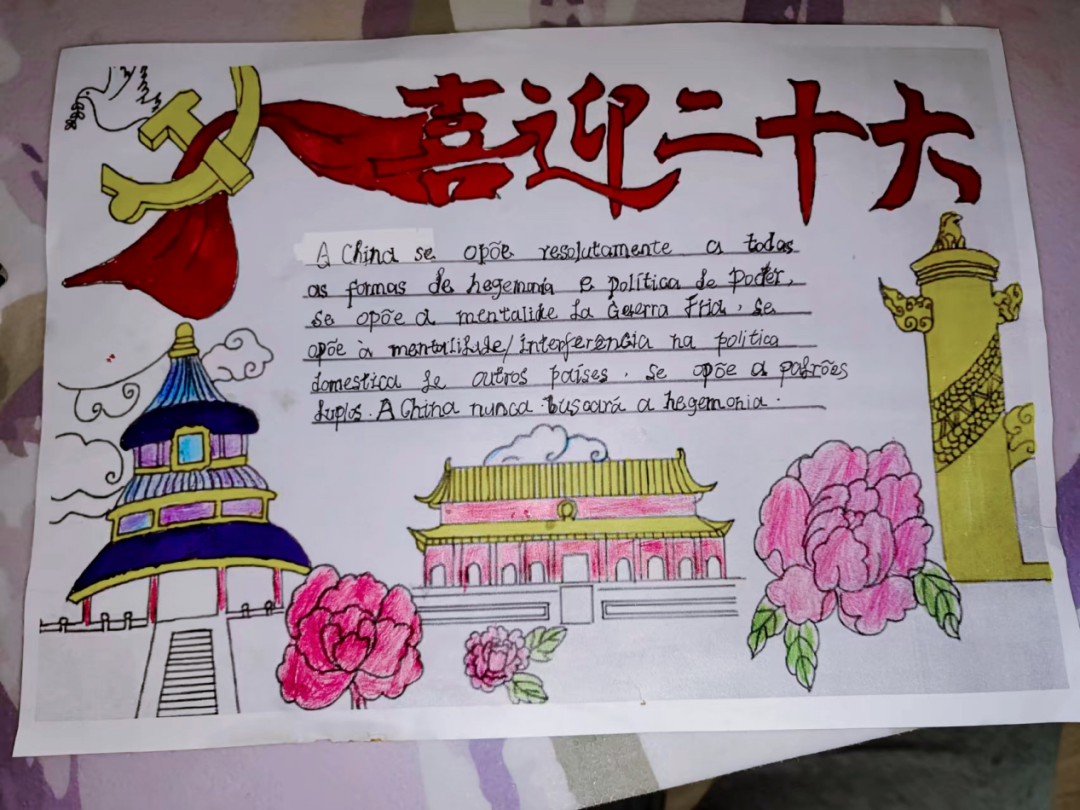 喜迎二十大
A China se opõe resolutamente a todas
as formas de hegemonia e política de poder,
se opõe a mentalide da Guerra Fria, se
opõe à mentalidade/interferência na politica
domestica de outros países, se opõe a padrões
duplos. A China nunca buscará a hegemonia.